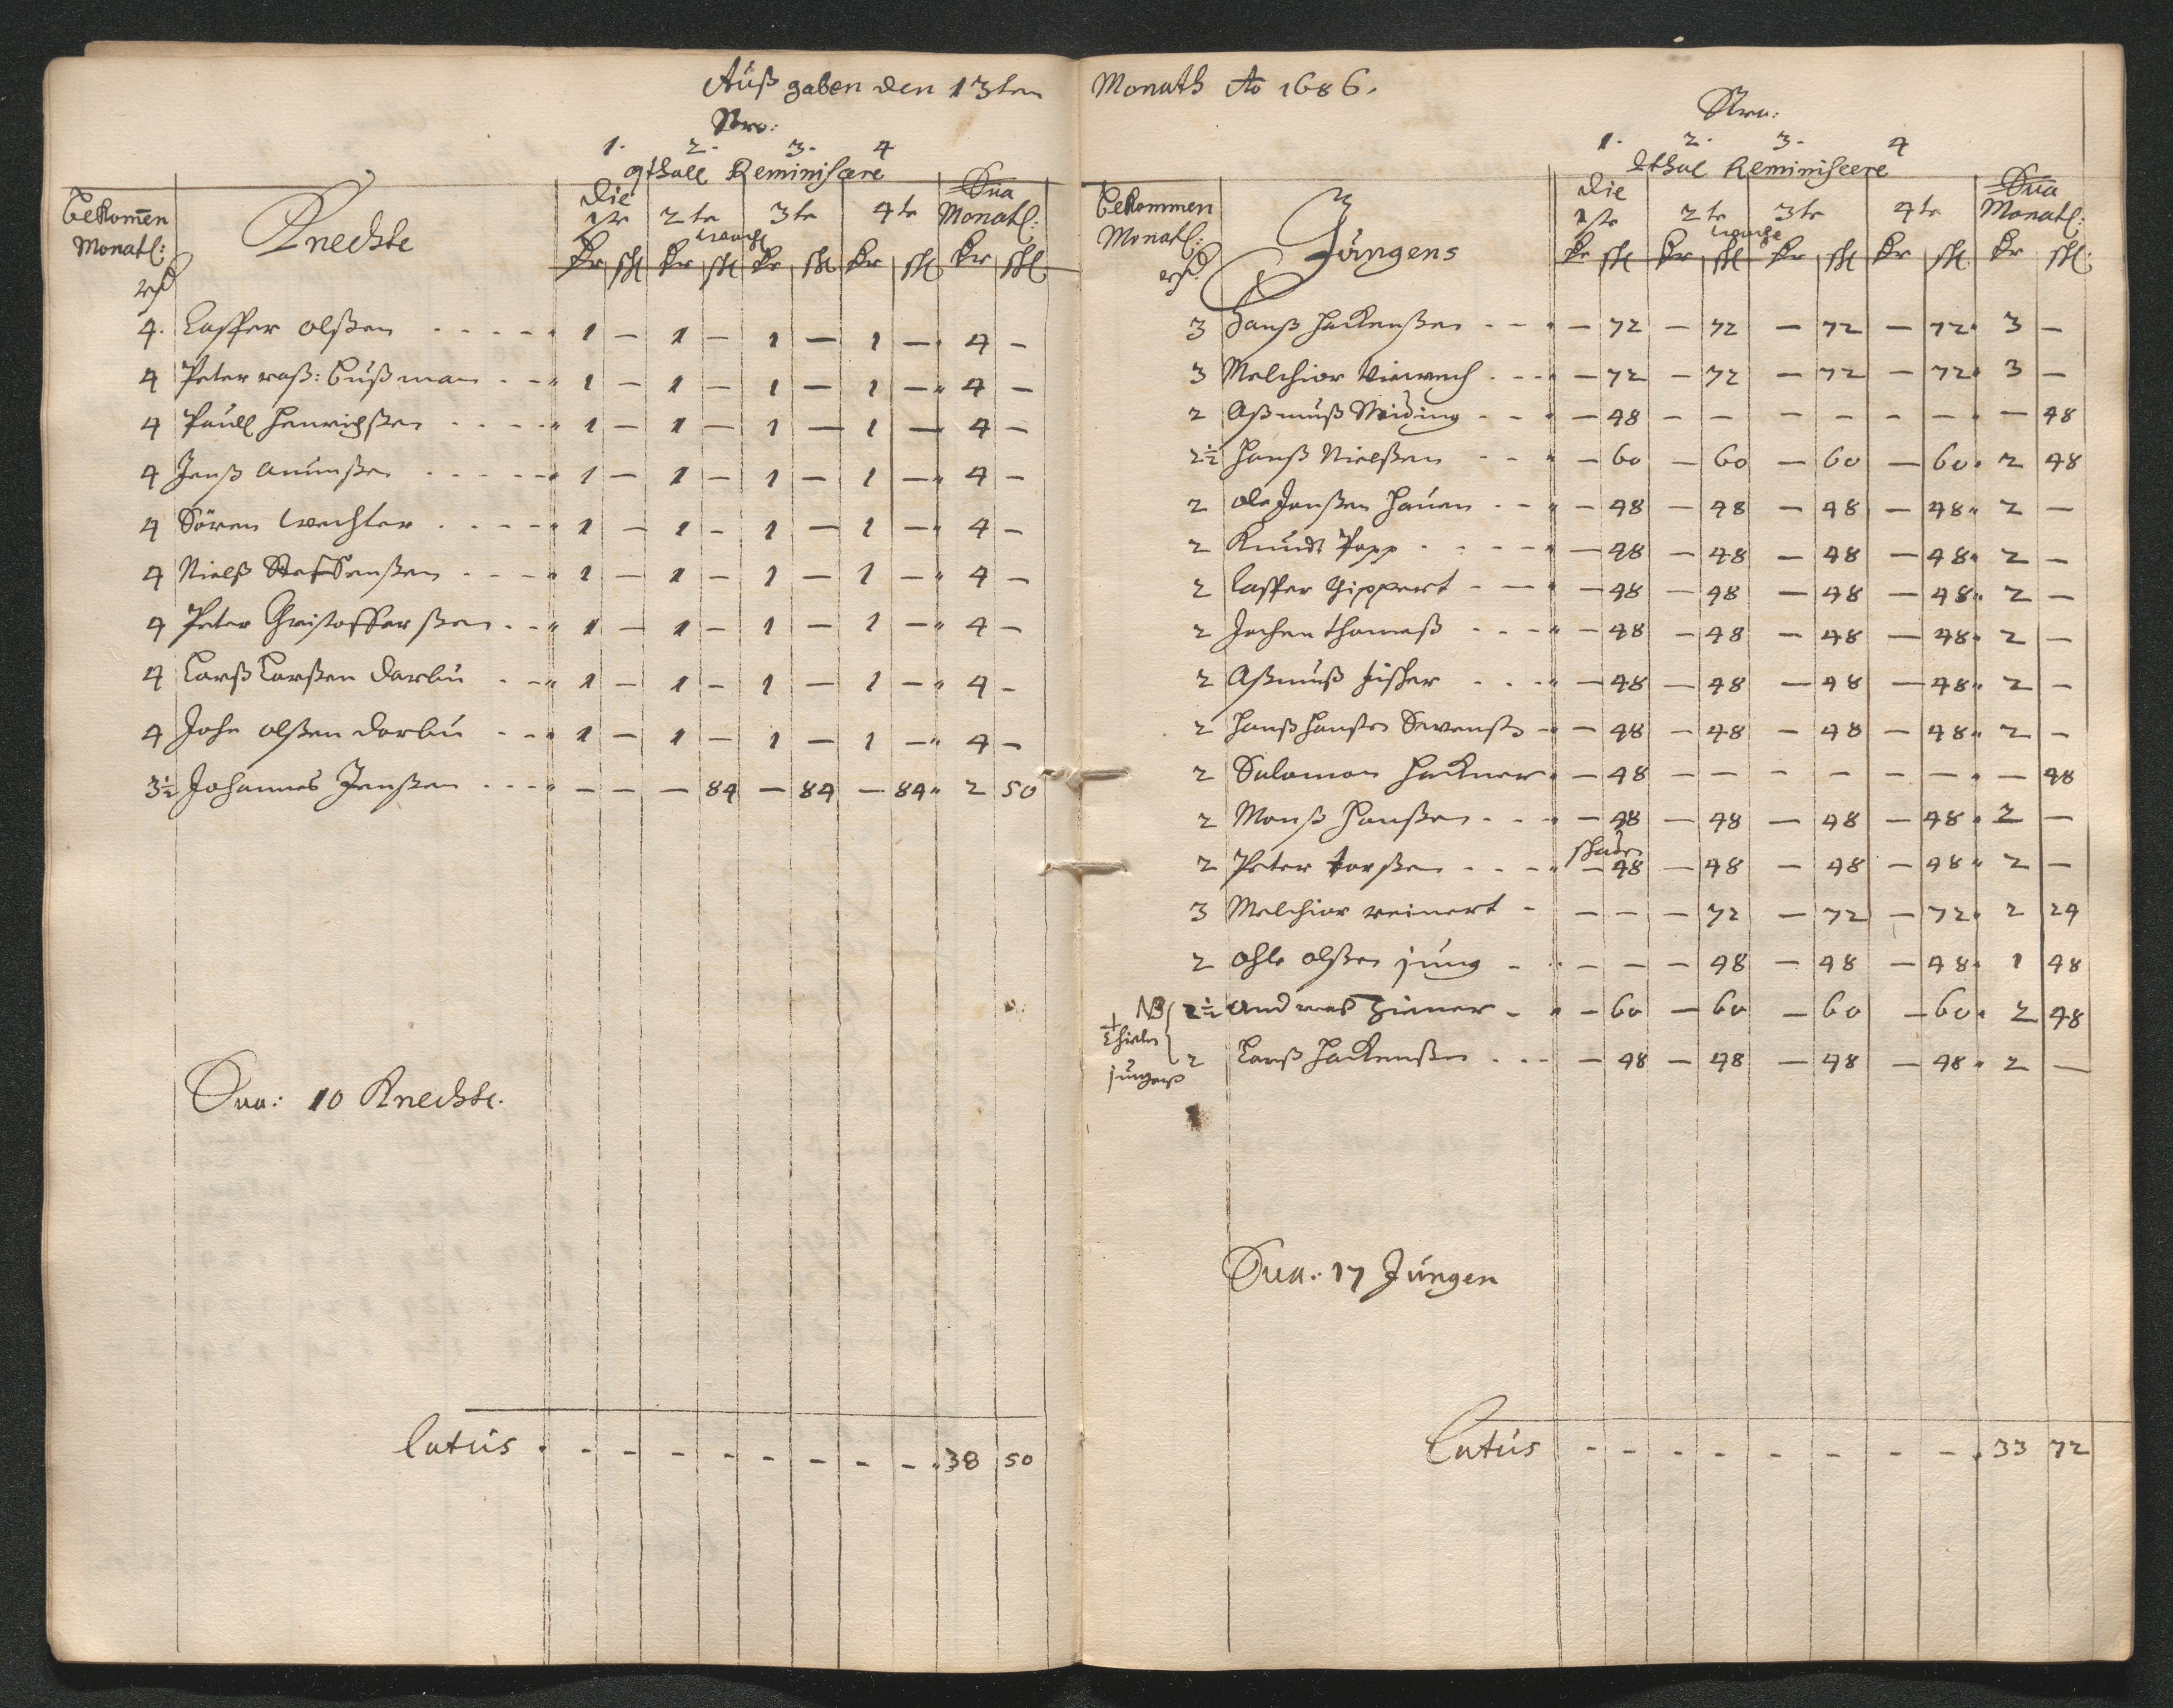 Auß gaben den 13ten Monath Ao 1686.
Nro:
1. 2. 3. 4
qthall Reminiscere
Bekomen Monatl: Knechte Die 1te 2te 3te 4te Sua Monatl:
woch
Kr ßl Kr ßl Kr ßl Kr ßl Kr ßl
4. Casper olßen - - - - 1 — 1 — 1 — 1 — 4 —
4 Peter raß: Bußman - - 1 — 1 — 1 — 1 — 4 —
4 Paull Henrichßen - - - - 1 — 1 — 1 — 1 — 4 —
4 Jenß Amunßen - - - - 1 — 1 — 1 — 1 — 4 —
4 Sören Wechter - - - - 1 — 1 — 1 — 1 — 4 —
4 Nielß Steffenßen - - - 1 — 1 — 1 — 1 — 4 —
4 Peter Christofferßen - - 1 — 1 — 1 — 1 — 4 —
4 Larß Larßen Darbu - - 1 — 1 — 1 — 1 — 4 —
4 John olßen Darbu - - - 1 — 1 — 1 — 1 — 4 —
3½ Johannes Jenßen - - - — — — 84 — 84 — 84 2 50
Sua: 10 Knechte.
latus - - - - - - - - 38 50
Nro:
1. 2. 3. 4
qthal Reminiscere
Bekommen Monatl: Jungens Die 1te 2te 3te 4te Sua Monatl:
woche
Kr ßl Kr ßl Kr ßl Kr ßl Kr ßl
3 Hanß Hackenßen - - — 72 — 72 — 72 — 72 3 —
3 Melchior - - - — 72 — 72 — 72 — 72 3 —
2 Aßmuß - - — 48 — — — — — — — 48
2½ Hanß Nielßen - - - — 60 — 60 — 60 — 60 2 48
2 Ole Janßen Hauen - - — 48 — 48 — 48 — 48 2 —
2 Knudt Popp - - - - — 48 — 48 — 48 — 48 2 —
2 Casper Gippert - - - — 48 — 48 — 48 — 48 2 —
2 Jochen Thomaß - - - — 48 — 48 — 48 — 48 2 —
2 Aßmuß Fischer - - - — 48 — 48 — 48 — 48 2 —
2 Hanß Hanßen - — 48 — 48 — 48 — 48 2 —
2 Salomon Hackner — 48 — — — — — — — 48
2 Monß Hanßen - - - — 48 — 48 — 48 — 48 2 —
2 Peter Torßen - - - — 48 — 48 — 48 — 48 2 —
3 Melchior reinert - — — — 72 — 72 — 72 2 24
2 ohle olßen jung - - — — — 48 — 48 — 48 1 48
NB 2½ Andreas Ziener - — 60 — 60 — 60 — 60 2 48
jungens 2 Larß Hackenßen - - - — 48 — 48 — 48 — 48 2 —
Sua: 17 Jungen
Latus - - - - - - - - 33 72